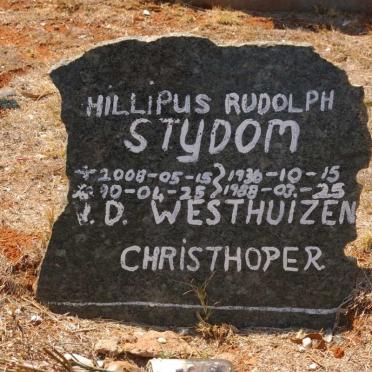 HILLIPUS RUDOLPH
STYDOM
2008-05-15 } 1936-10-15
90-04-25 } 1988-03-25
V.D. WESTHUIZEN
CHRISTHOPER